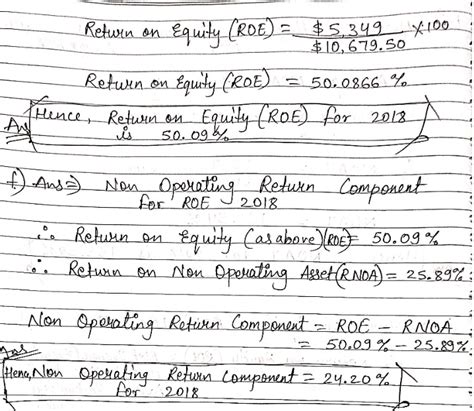 Return on Equity (ROE) = $5,349 / $10,679.50 X100
Return on Equity (ROE) = 50.0866 %
Hence, Return on Equity (ROE) for 2018
Ans is 50.09%
f) Ans⇒ Non Operating Return Component
for ROE 2018
∴ Return on Equity (as above)(ROE)= 50.09%
∴ Return on Non Operating Asset(RNOA) = 25.89%
Non Operating Return Component = ROE - RNOA
= 50.09% - 25.89%
Ans
Hence, Non Operating Return Component = 24.20%
for 2018